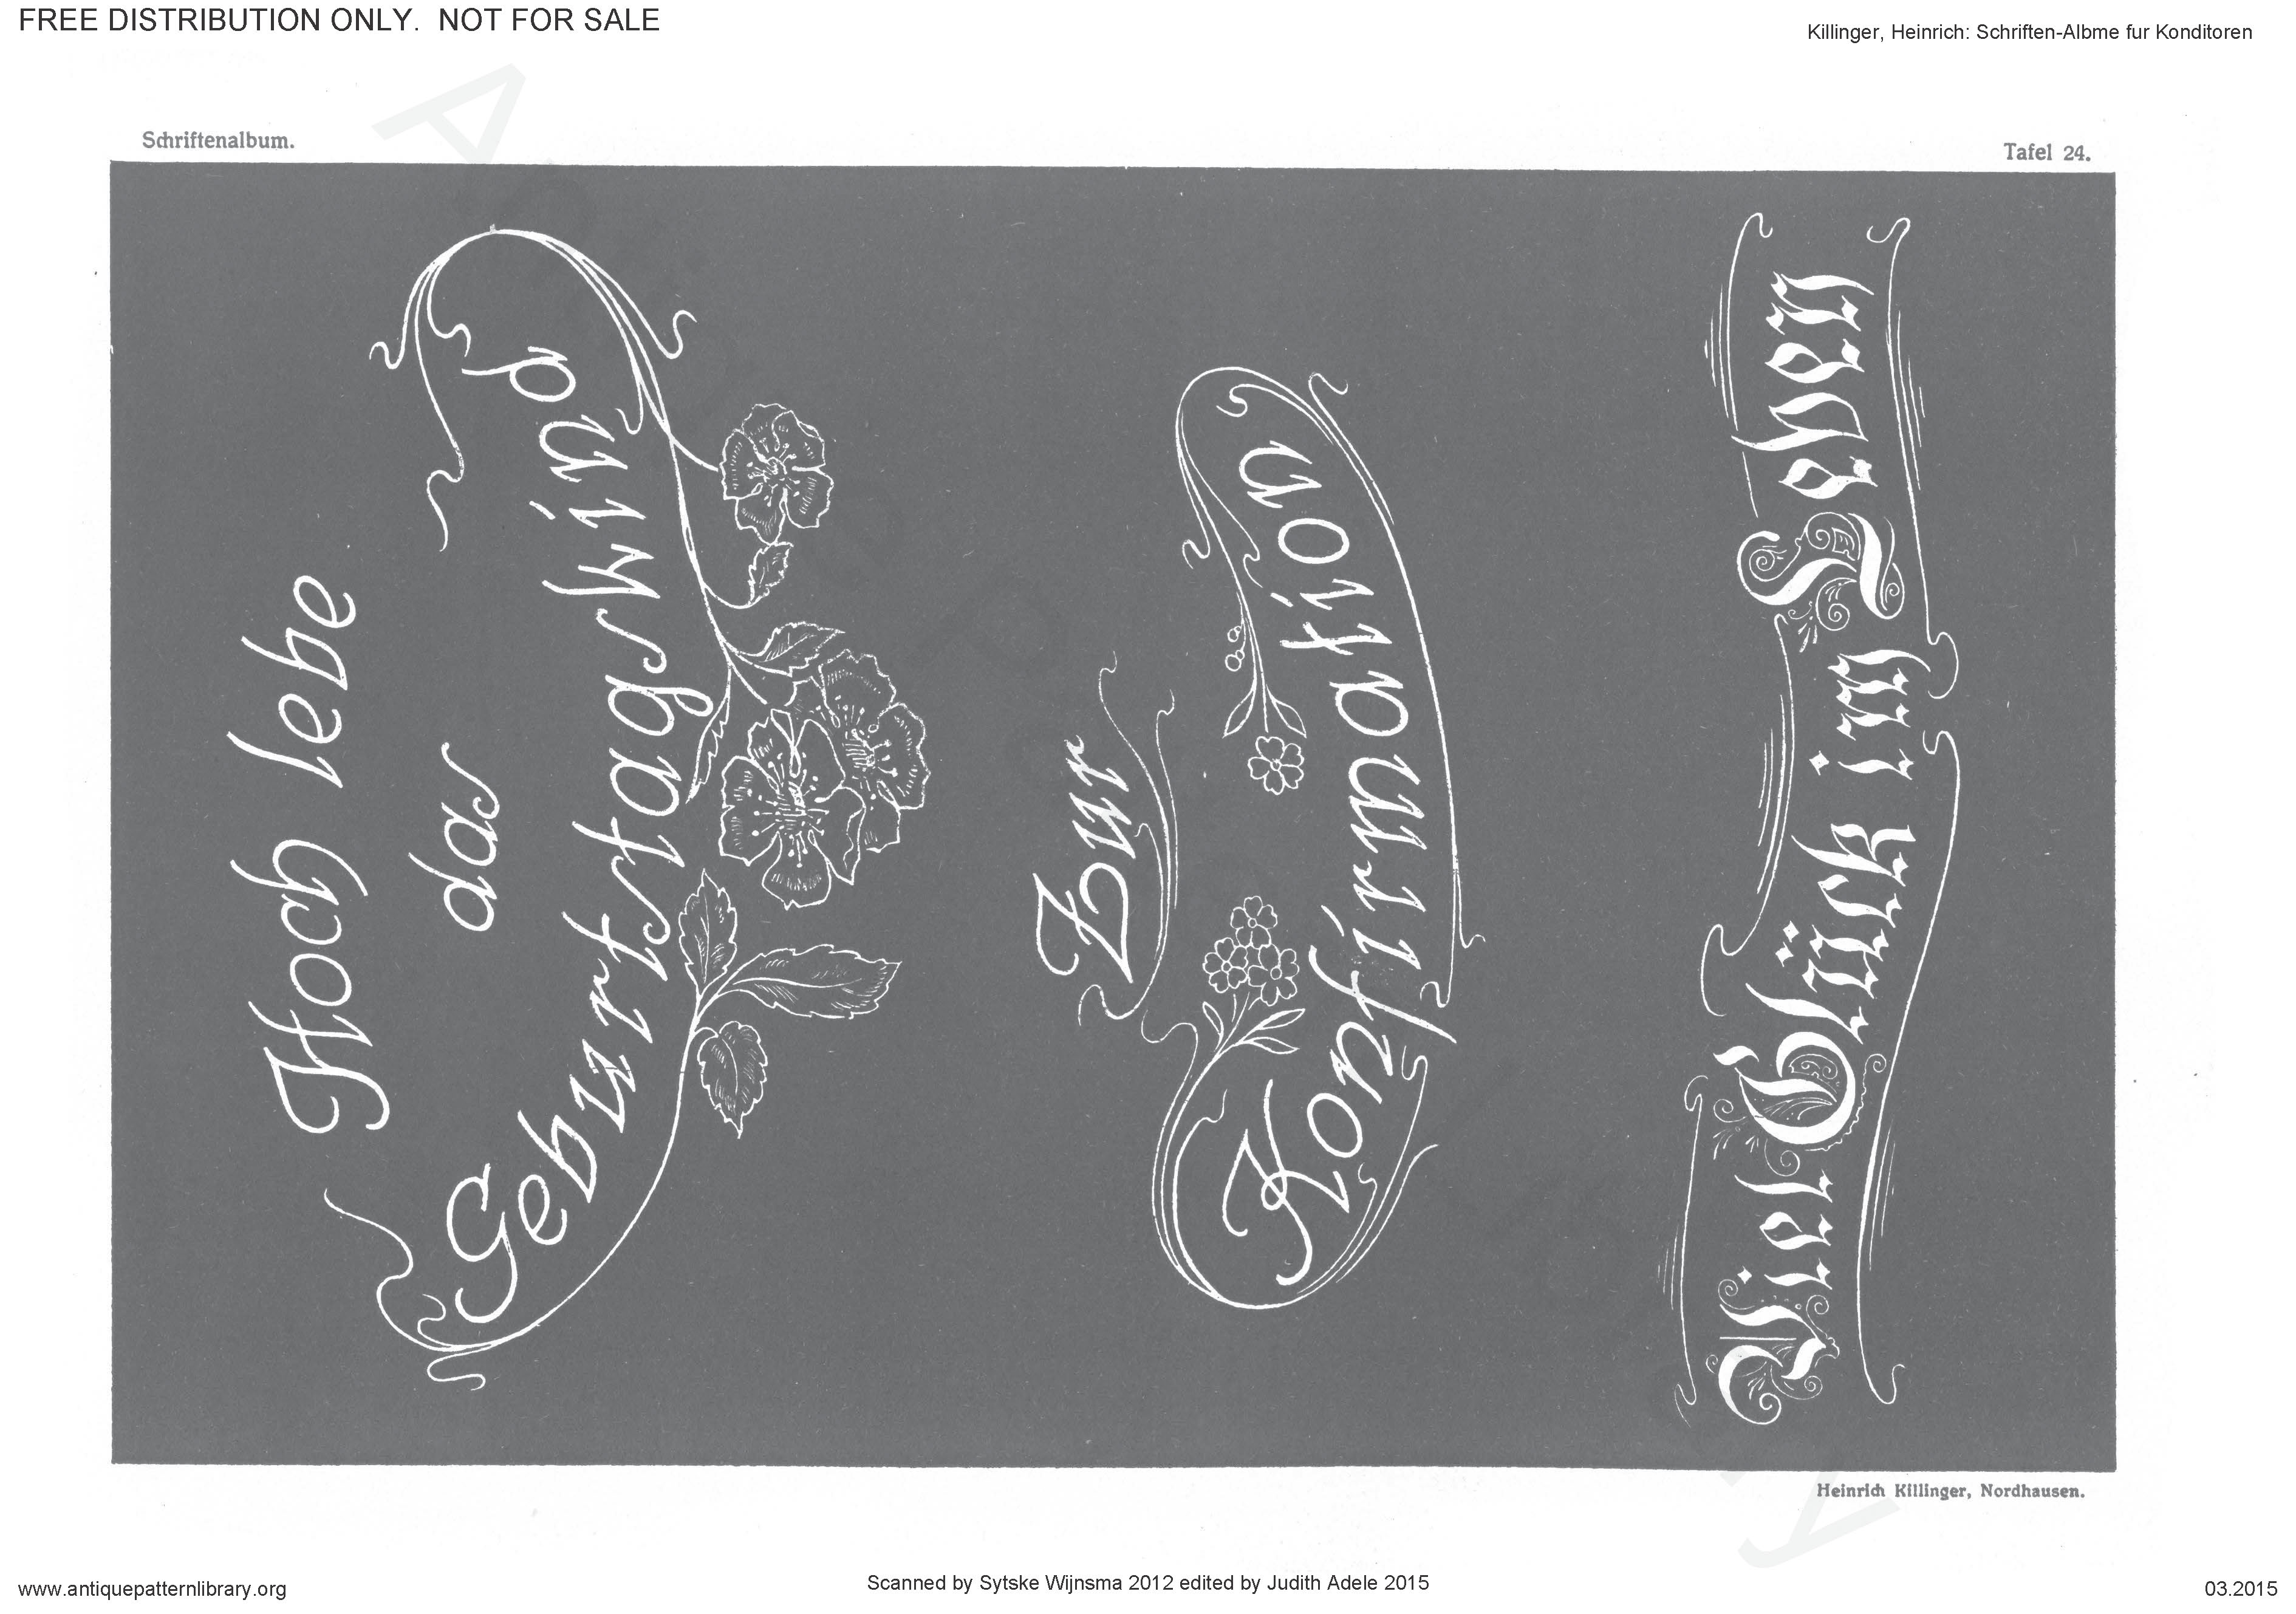 FREE DISTRIBUTION ONLY. NOT FOR SALE
Killinger, Heinrich: Schriften-Albme fur Konditoren
Schriftenalbum.
Tafel 24.
Hoch lebe
das
Geburtstagskind
Zur
Konfirmation
Viel Glück im Leben
Heinrich Killinger, Nordhausen.
www.antiquepatternlibrary.org
Scanned by Sytske Wijnsma 2012 edited by Judith Adele 2015
03.2015